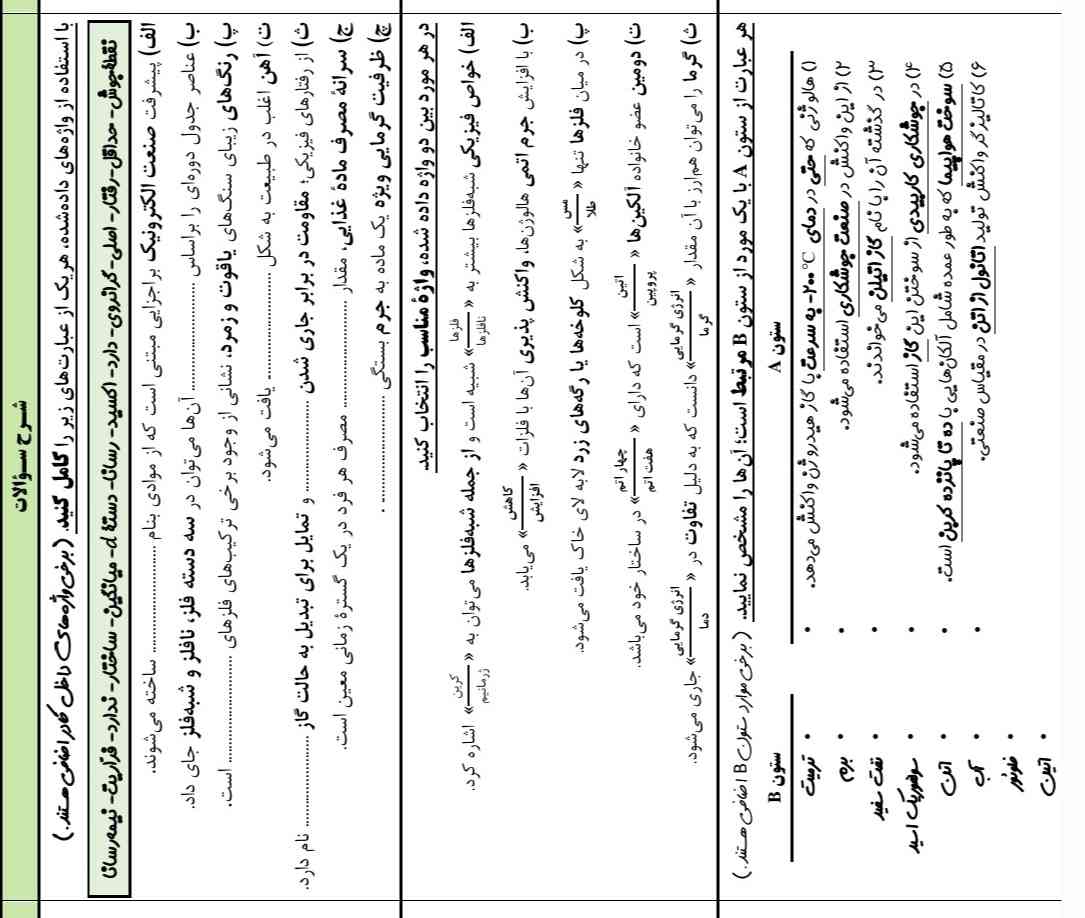 شرح سؤالات
با استفاده از واژه‌های داده‌شده، هر یک از عبارت‌های زیر را کامل کنید. (برخی واژه‌های داخل کادر اضافی هستند.)
نقطهٔ جوش- حداقل- رفتار- اصلی- گرانروی- دارد- اکسید- رسانا- دستهٔ d- میانگین- ساختار- ندارد- فراریت- نیمه‌رسانا
الف) پیشرفت صنعت الکترونیک بر اجزایی مبتنی است که از موادی بنام .................. ساخته می‌شوند.
ب) عناصر جدول دوره‌ای را براساس .................. آن‌ها می‌توان در سه دسته فلز، نافلز و شبه‌فلز جای داد.
پ) رنگ‌های زیبای سنگ‌های یاقوت و زمرد، نشانی از وجود برخی ترکیب‌های فلزهای .................. است.
ت) آهن اغلب در طبیعت به شکل .................. یافت می‌شود.
ث) از رفتارهای فیزیکی؛ مقاومت در برابر جاری شدن .................. و تمایل برای تبدیل به حالت گاز .................. نام دارد.
ج) سرانهٔ مصرف مادهٔ غذایی، مقدار .................. مصرف هر فرد در یک گسترهٔ زمانی معین است.
چ) ظرفیت گرمایی ویژه یک ماده به جرم بستگی .................. .
در هر مورد بین دو واژه داده شده، واژهٔ مناسب را انتخاب کنید.
الف) خواص فیزیکی شبه‌فلزها بیشتر به « فلزها / نافلزها » شبیه است و از جمله شبه‌فلزها می‌توان به « کربن / ژرمانیم » اشاره کرد.
ب) با افزایش جرم اتمی هالوژن‌ها، واکنش پذیری آن‌ها با فلزات « کاهش / افزایش » می‌یابد.
پ) در میان فلزها تنها « مس / طلا » به شکل کلوخه‌ها یا رگه‌های زرد لابه لای خاک یافت می‌شود.
ت) دومین عضو خانواده آلکین‌ها « اتین / پروپین » است که دارای « چهار اتم / هفت اتم » در ساختار خود می‌باشد.
ث) گرما را می‌توان هم‌ارز با آن مقدار « انرژی گرمایی / گرما » دانست که به دلیل تفاوت در « انرژی گرمایی / دما » جاری می‌شود.
هر عبارت از ستون A با یک مورد از ستون B مرتبط است؛ آن‌ها را مشخص نمایید. (برخی موارد ستون B اضافی هستند.)
ستون A
ستون B
۱) هالوژنی که حتی در دمای ۲۰۰°C- به سرعت با گاز هیدروژن واکنش می‌دهد.
• تریت
۲) از این واکنش در صنعت جوشکاری استفاده می‌شود.
• برم
۳) در گذشته آن را با نام گاز اتیلن می‌خواندند.
• نفت سفید
۴) در جوشکاری کاربیدی از سوختن این گاز استفاده می‌شود.
• سولفوریک اسید
۵) سوخت هواپیما که به طور عمده شامل آلکان‌هایی با ده تا پانزده کربن است.
• اتن
۶) کاتالیزگر واکنش تولید اتانول از اتن در مقیاس صنعتی.
• آب
• فلوئور
• اتین